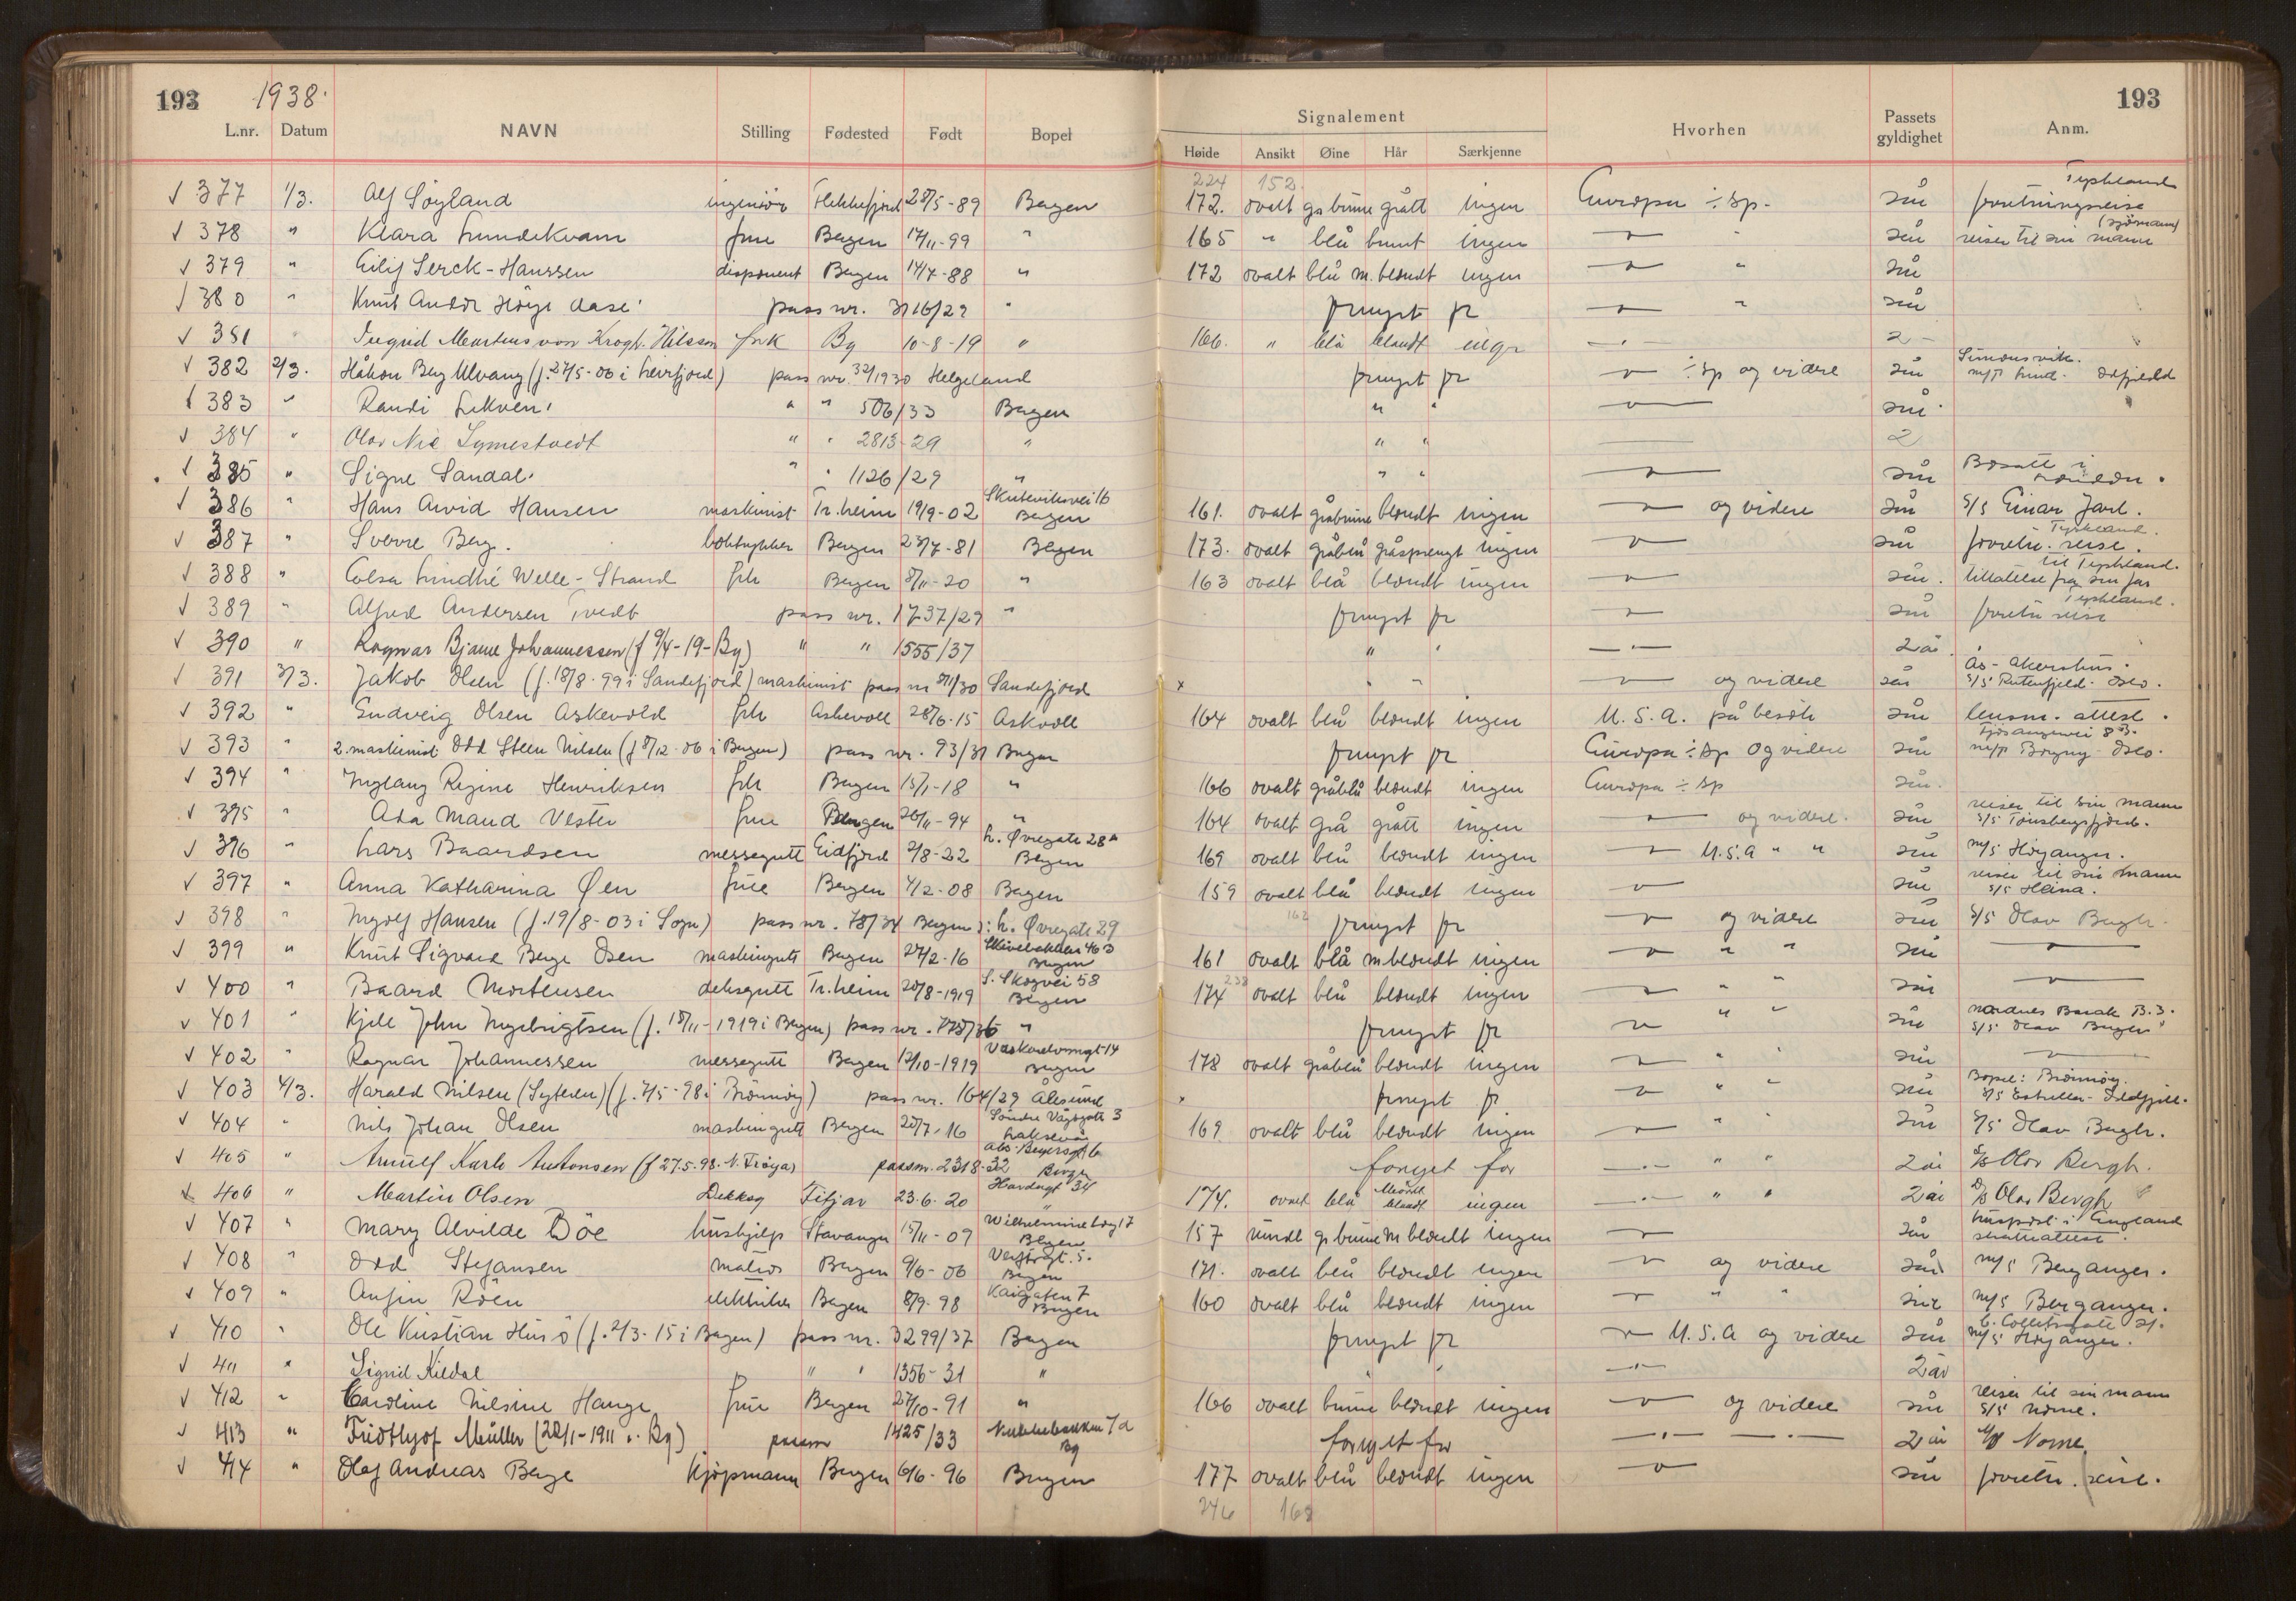 193 1938. 193
L.nr. Datum NAVN Stilling Fødested Født Bopel Signalement Hvorhen Passets gyldighet Anm.
Høide Ansikt Øine Hår Særkjenne
224 152 Tyskland
377 1/3. Alf Søyland ingeniør Flekkefjord 28/5-89 Bergen 172. ovalt gr brune grått ingen Europa ÷ Sp. 2 år forretningsreise
(sjømann)
378 " Klara Lundekvam frue Bergen 17/11-99 " 165 " blå brunt ingen — " 2 år reiser til sin mann
379 " Eilif Serck-Hanssen disponent Bergen 14/7-88 " 172 ovalt blå m.blondt ingen — " 2 år
380 " Knut Andr Høye Aase pass nr. 3716/29 " fornyet for — " 2 år
381 " Ingrid Martens von Krogh Nilsson frk Bg 10-8-19 " 166. " blå blondt ingen — 2 -
382 2/3. Håkon Berg Ulvang (f. 27/5-06 i Leirfjord) pass nr. 32/1930 Helgeland fornyet for — ÷ Sp og videre 2 år Simonsvik. m/t Lind - Odfjeld
383 " Randi Lekven " " 506/33 Bergen " " — 2 år
384 " Olav Nic Lymestvedt " " 2813-29 " " " — 2
385 " Signe Sandal " 1126/29 " " " — 2 år Bosatt i London.
386 " Hans Arvid Hansen maskinist Tr.heim 19/9-02 Skuteviksvei 16 Bergen 161. ovalt gråbrune blondt ingen — og videre 2 år S/S Einar Jarl.
387 " Sverre Berg. boktrykker Bergen 23/7-81 Bergen 173. ovalt gråblå gråsprengt ingen — 2 år Tyskland. forretn. reise.
388 " Elsa Lindthé Welle-Strand frk Bergen 8/11-20 " 163 ovalt blå blondt ingen — 2 år. til Tyskland. tillatelse fra sin far
389 " Alfred Andersen Tvedt pass nr. 1737/29 " fornyet for — 2 år Tyskland. forretn reise
390 " Ragnar Bjarne Johannessen (f 9/4-19-Bg) " " 1555/37 " " — 2 år.
391 3/3. Jakob Olsen (f. 18/8-99 i Sandefjord) maskinist pass nr /30 Sandefjord x " " — og videre 2 år Ås - Akershus. S/S Rutenfjeld - Oslo.
392 " Sudveig Olsen Askevold frk Askevoll 28/6-15 Askvoll 164 ovalt blå blondt ingen U.S.A. på besøk 2 år lensm. attest.
393 " 2. maskinist Odd Steen Nilsen (f 8/12-06 i Bergen) pass nr. 93/31 Bergen fornyet for Europa ÷ Sp og videre 2 år Fjøsangervei 83. m/t Borgny - Oslo.
394 " Inglaug Regine Henriksen frk Bergen 15/1-18 " 166 ovalt gråblå blondt ingen Europa ÷ Sp 2 år.
395 " Ada Maud Vester frue Bergen 26/11-94 " 164 ovalt grå grått ingen — og videre. 2 år reiser til sin mann S/S Tønsbergfjord.
396 " Lars Baardsen messegutt Eidfjord 2/8-22 L. Øvregate 28a Bergen 169 ovalt blå blondt ingen — U.S.A " " 2 år M/S Høyanger.
397 " Anna Katharina Øen frue Bergen 4/2-08 Bergen 159 ovalt blå blondt ingen — 2 år reiser til sin mann S/S Heina.
398 " Ingolf Hansen (f. 19/8-03 i Sogn) pass nr. 78/34 Bergen : L. Øvregate 29 162 fornyet for — og videre 2 år S/S Olav Bergh
399 " Knut Sigvard Berge Osen maskingutt Bergen 27/2-16 463 Bergen 161 ovalt blå m.blondt ingen — " " 2 år —
400 " Baard Mortensen dekksgutt Tr.heim 20/8-1919 S. Skogvei 58 Bergen 174 238 ovalt blå blondt ingen — " " 2 år —
401 " Kjell John Ingebrigtsen (f. 18/11-1919 i Bergen) pass nr. /36 " fornyet for — " " 2 år Nordnes Barak B.3. S/S Olav Bergh
402 " Ragnar Johannessen messegutt Bergen 12/10-1919 14 Bergen 178 ovalt gråblå blondt ingen — " " 2 år —
403 4/3. Harald Nilsen (Lyteren) (f. 7/5-98 i Brønnøy) pass nr. 164/29 Ålesund x fornyet for — " " 2 år Bopel: Brønnøy. S/S Estrella - Oddfjell.
404 " Nils Johan Olsen maskingutt Bergen 20/7-16 Søndre Vågsgate 3 Laksevåg 169 ovalt blå blondt ingen — " " 2 år S/S Olav Bergh.
405 " Arnulf Karlo Antonsen (f 27.5.98. N. Frøya) passnr. 2318-32 Abs. Beyersgt 6 Bergen fornyet for — " " 2 år S/S Olav Bergh.
406 " Martin Olsen Dekksg Fitjar 23-6-20 Hardagt 34 " 174. ovalt blå blondt ingen — " " 2 år D/S Olav Bergh
407 " Mary Alvilde Bøe hushjelp Stavanger 15/11-09 Wilhelmineborg 17 Bergen 157 rundt gr brune m blondt ingen — 2 år huspost i England
408 " Odd Stefansen matros Bergen 9/6-06 Verftsgt. 5. Bergen 171. ovalt blå blondt ingen — og videre 2 år M/S Berganger.
409 " Anfin Röen elektriker Bergen 8/9-98 Kaigaten 7 Bergen 160 ovalt blå blondt ingen — " " 2 år M/S Berganger.
410 " Ole Kristian Husø (f. 2/3-15 i Bergen) pass nr. 3299/37 Bergen fornyet for — U.S.A og videre 2 år C. Collettsgate 21. M/S Høyanger.
411 " Sigrid Kildal " " 1356-31 " " " — 2 år
412 " Caroline Nilsine Hauge frue Bergen 27/10-91 " 166 ovalt brune blondt ingen — og videre 2 år reiser til sin mann S/S Norne.
413 " Fridthjof Müller (22/11-1911 i. Bg) passnr 1425/33 Nubbebakken 7d Bg fornyet for — — 2 år D/S Norne.
414 " Olaf Andreas Berge Kjøpmann Bergen 6/6-96 Bergen 177 ovalt blå blondt ingen — 2 år forretn. reise.
246 168